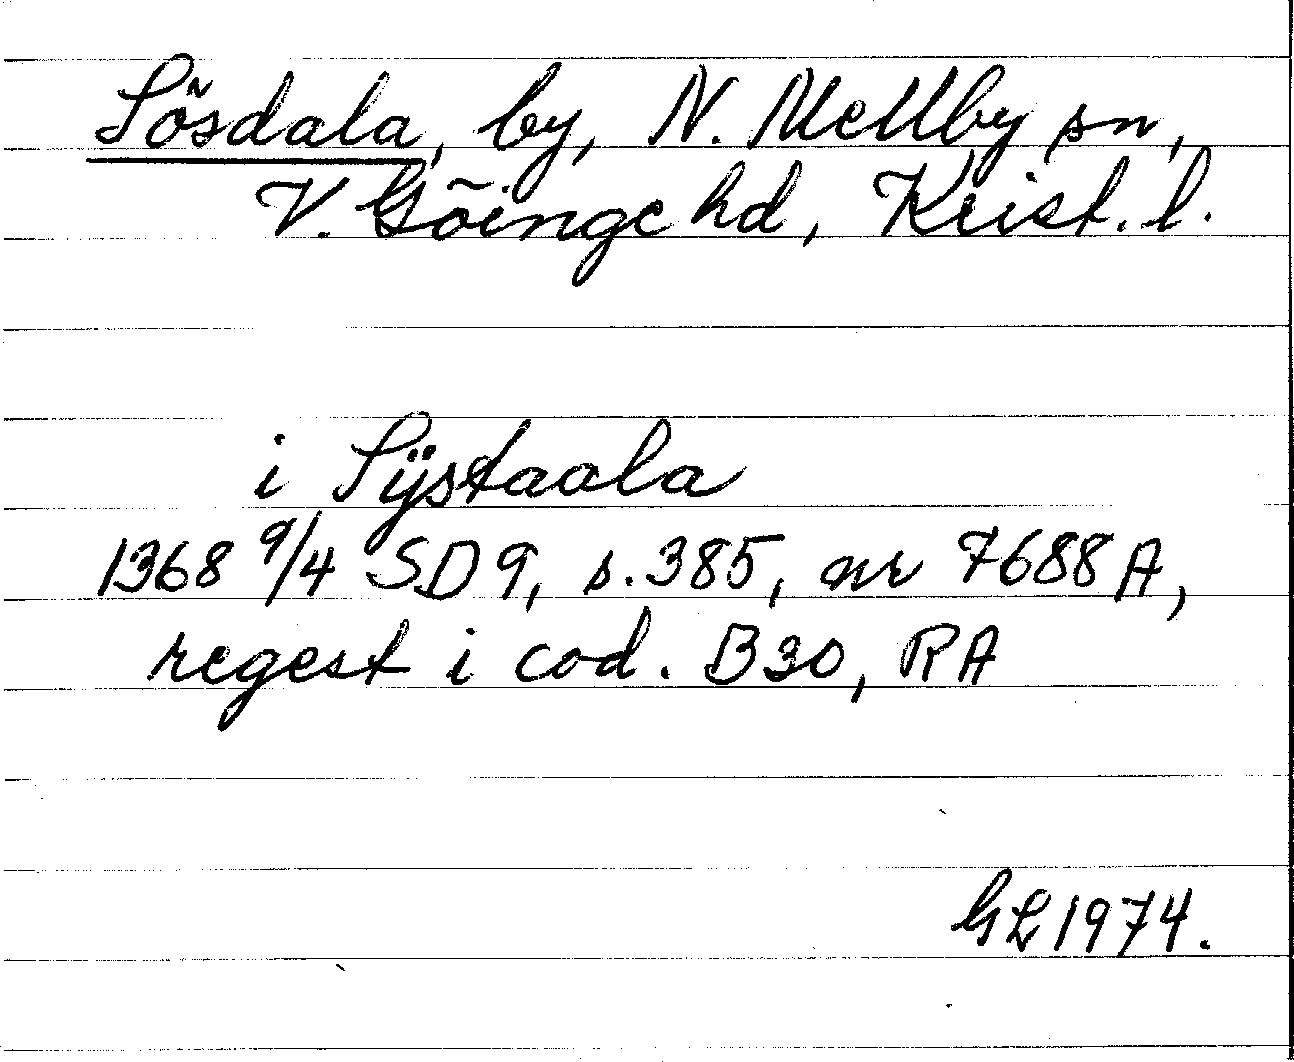 Sösdala, by, N. Mellby sn,
V. Göinge hd, Krist. l.
i Sÿstaala
1368 9/4 SD 9, s. 385, nr 7688 A,
regest i cod. B 30, RA
GL 1974.